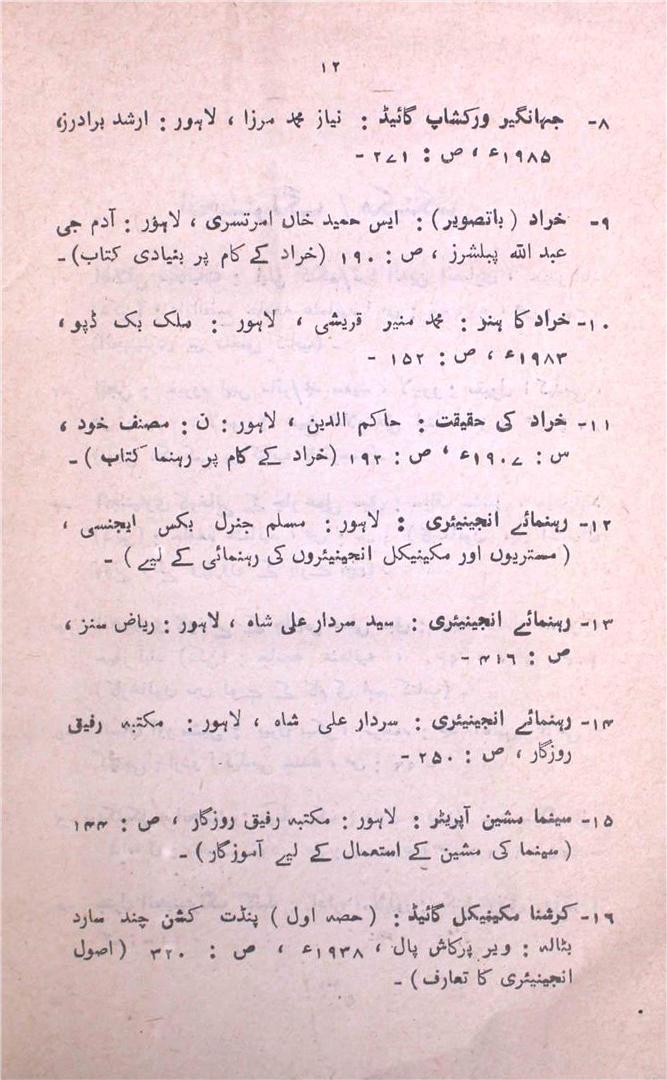 ۱۲
۸- جہانگیر ورکشاپ گائیڈ : نیاز محمد مرزا ، لاہور : ارشد برادرز،
۱۹۸۵ء ، ص : ۲۷۱ -
۹- خراد ( باتصویر) : ایس حمید خاں امرتسری ، لاہور : آدم جی
عبد اللہ پبلشرز ، ص : ۱۹۰ (خراد کے کام پر بنیادی کتاب) -
۱۰- خراد کا ہنر : محمد منیر قریشی ، لاہور : ملک بک ڈپو ،
۱۹۸۳ء ، ص : ۱۵۲ -
۱۱- خراد کی حقیقت : حاکم الدین ، لاہور : ن : مصنف خود ،
س : ۱۹۰۷ء ، ص : ۱۹۲ (خراد کے کام پر رہنما کتاب ) -
۱۲- رہنمائے انجینیئری : لاہور : مسلم جنرل بکس ایجنسی ،
( مستریوں اور مکینیکل انجینیئروں کی رہنمائی کے لیے ) -
۱۳- رہنمائے انجینیئری : سید سردار علی شاہ ، لاہور : ریاض سنز ،
ص : ۴۱۶ -
۱۴- رہنمائے انجینیئری : سردار علی شاہ ، لاہور : مکتبہ رفیق
روزگار ، ص : ۲۵۰ -
۱۵- سینما مشین آپریٹر : لاہور : مکتبہ رفیق روزگار ، ص : ۱۴۴
( سینما کی مشین کے استعمال کے لیے آموزگار ) -
۱۶- کرشنا مکینیکل گائیڈ : ( حصہ اول ) پنڈت کشن چند سارد
بٹالہ : ویر پرکاش پال ، ۱۹۳۸ء ، ص : ۳۲۰ ( اصول
انجینیئری کا تعارف ) -